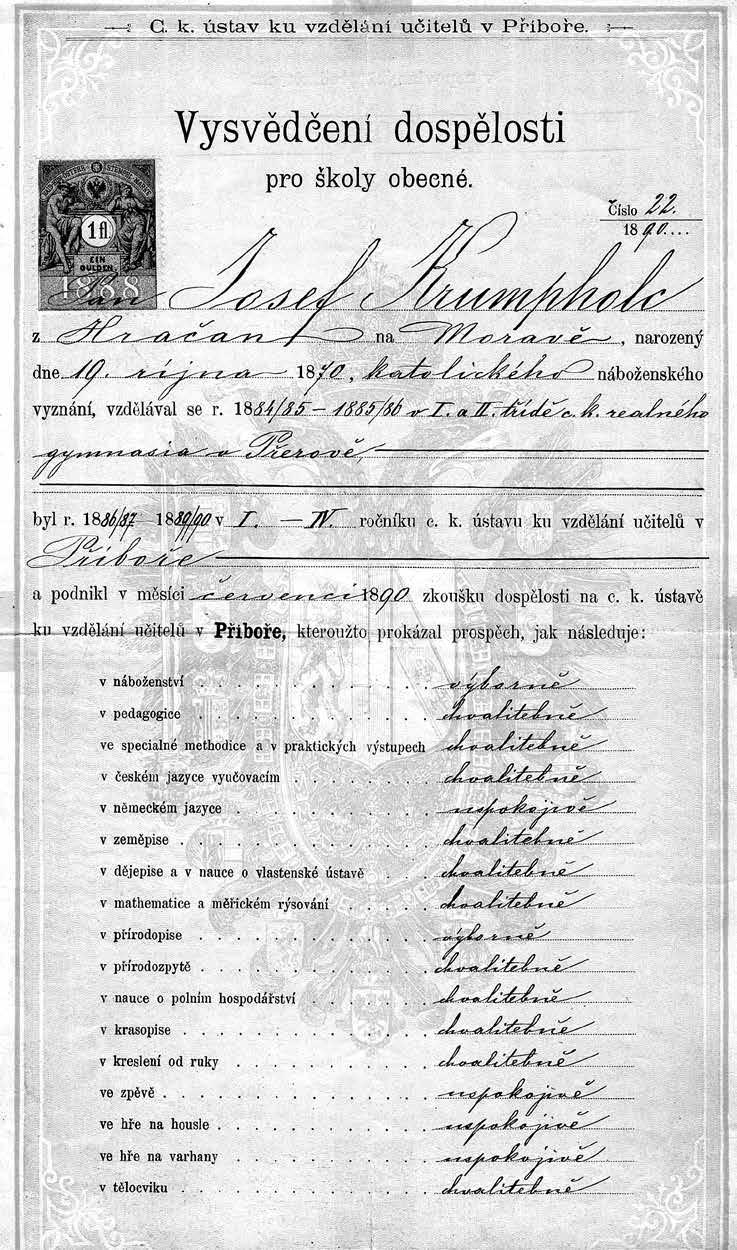 C. k. ústav ku vzdělání učitelů v Příboře.
Vysvědčení dospělosti
pro školy obecné.
Číslo 22.
1890....
1 fl
EIN
GULDEN
1888
Pan Josef Krumpholc
z Hračan na Moravě, narozený
dne 19. října 1870, katolického náboženského
vyznání, vzdělával se r. 1884/85 – 1885/86 v I. a II. třídě c. k. realného
gymnasia v Přerově,
byl r. 1886/87 – 1889/90 v I. – IV. ročníku c. k. ústavu ku vzdělání učitelů v
Příboře
a podnikl v měsíci červenci 1890 zkoušku dospělosti na c. k. ústavě
ku vzdělání učitelů v Příboře, kteroužto prokázal prospěch, jak následuje:
v náboženství výborně
v pedagogice chvalitebně
ve specialné methodice a v praktických výstupech chvalitebně
v českém jazyce vyučovacím chvalitebně
v německém jazyce uspokojivě
v zeměpise chvalitebně
v dějepise a v nauce o vlastenské ústavě chvalitebně
v mathematice a měřickém rýsování chvalitebně
v přírodopise výborně
v přírodozpytě chvalitebně
v nauce o polním hospodářství chvalitebně
v krasopise chvalitebně
v kreslení od ruky chvalitebně
ve zpěvě uspokojivě
ve hře na housle uspokojivě
ve hře na varhany uspokojivě
v tělocviku chvalitebně